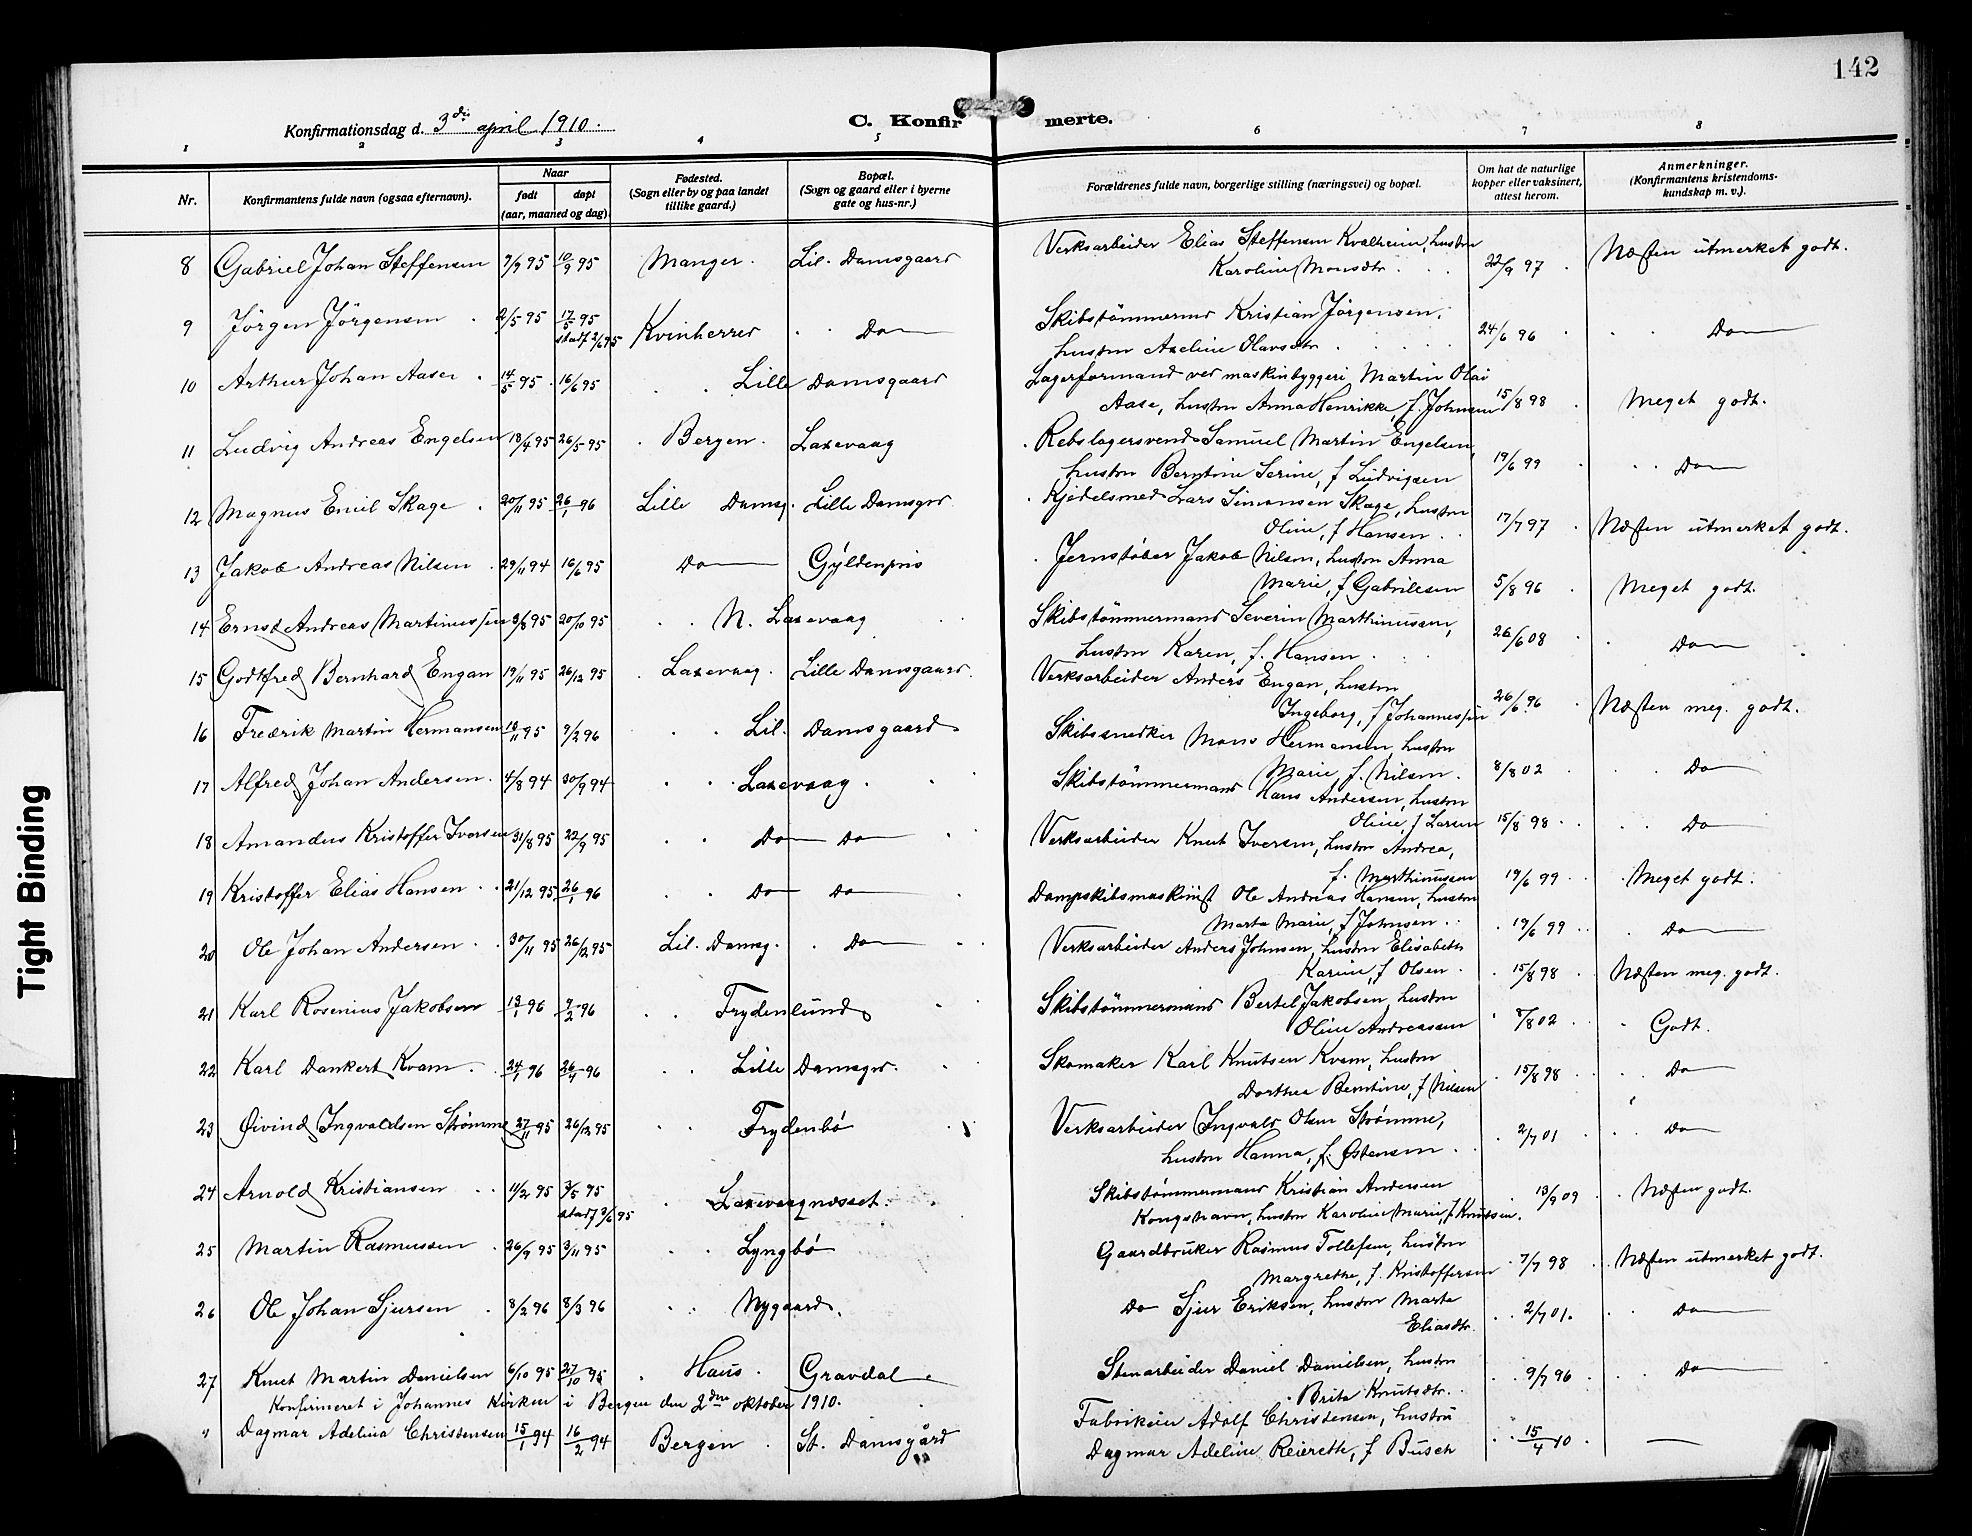 142
Konfirmationsdag d. 3die april 1910.
C. Konfirmerte.
1 2 3 4 5 6 7 8
Nr.
Konfirmantens fulde navn (ogsaa efternavn).
Naar
født
døpt
(aar, maaned og dag).
Fødested.
(Sogn eller by og paa landet
tillike gaard.)
Bopæl.
(Sogn og gaard eller i byerne
gate og hus-nr.)
Forældrenes fulde navn, borgerlige stilling (næringsvei) og bopæl.
Om hat de naturlige
kopper eller vaksinert,
attest herom.
Anmerkninger.
(Konfirmantens kristendoms-
kundskap m. v.).
8 Gabriel Johan Steffensen 7/9 95 10/9 95 Manger. Lil. Damsgaard Verksarbeider Elias Steffensen Kvalheim, hustru
Karoline Monsdtr. 22/9 97 Næsten utmerket godt.
9 Jörgen Jörgensen 2/5 95 17/5 95 Kvinherred Do Skibstömmermd Kristian Jörgensen,
stadf 2/6 95
hustru Axeline Olavsdtr. 24/6 96 Do
10 Arthur Johan Aase. 14/5 95. 16/6 95 Lille Damsgaard Lagerformand ved maskinbyggeri Martin Olai
Aase, hustru Anna Henrikke, f. Johnsen 15/8 98 Meget godt.
11 Ludvig Andreas Engelsen 18/4 95 26/5 95 Bergen. Laxevaag Rebslagersvend Samuel Martin Engelsen,
hustru Berntine Serine, f Ludvigsen 19/6 99 Do
12 Magnus Emil Skage. 20/11 95 26/1 96 Lille Damsg. Lille Damsgrd Kjedelsmed Lars Simonsen Skage, hustru
Oline, f Hansen. 17/7 97 Næsten utmerket godt.
13 Jakob Andreas Nilsen 29/11 94 16/6 95 Do Gyldenpris Jernstöber Jakob Nilsen, hustru Anna
Marie, f. Gabrilsen 5/8 96 Meget godt.
14 Ernst Andreas Martinussen 3/8 95 20/10 95 N. Laxevaag Skibstömmermand Severin Marthinussen,
hustru Karen, f. Hansen. 26/6 08 Do
15 Godtfred Bernhard Engan 19/11 95 26/12 95 Laxevaag. Lille Damsgaard. Verksarbeider Anders Engan, hustru
Ingeborg, f Johannessen 26/6 96 Næsten meg. godt.
16 Fredrik Martin Hermansen 10/11 95 9/2 96 Lil. Damsgaard Skibssnedker Mons Hermansen, hustru
Marie, f. Nilsen. 8/8 02 Do
17 Alfred Johan Andersen. 4/8 94 30/9 94 Laxevaag. Skibstömmermand Hans Andersen, hustru
Oline, f Larsen 15/8 98 Do
18 Amandus Kristoffer Iversen 31/8 95 22/9 95 Do Do Verksarbeider Knut Iversen, hustru Andrea,
f. Marthinussen 19/6 99 Meget godt.
19 Kristoffer Elias Hansen 21/12 95 26/1 96 Do Do Dampskibsmaskinist Ole Andreas Hansen, hustru
Marta Marie, f Johnsen 19/6 99 Do
20 Ole Johan Andersen 30/11 95 26/12 95 Lil. Damsg. Do Verksarbeider Anders Johnsen, hustru Elisabeth
Karine, f Olsen. 15/8 98 Næsten meg. godt.
21 Karl Rosenius Jakobsen 18/1 96 9/2 96 Frydenlund Skibstömmermand Bertel Jakobsen, hustru
Oline Andreassen 8/8 02 Godt.
22 Karl Dankert Kvam. 24/1 96 26/4 96 Lille Damsgrd. Skomaker Karl Knutsen Kvam, hustru
Dorthea Berntine, f Nilsen 15/8 98 Do
23 Øivind Ingvaldsen Strømme 27/11 95 26/12 95 Frydenbö Verksarbeider Ingvald Olsen Strømme,
hustru Hanna, f. Østensen. 2/7 01 Do
24 Arnold Kristiansen 11/2 95 3/5 95 Laxevaagnæsset. Skibstömmermand Kristian Andersen
stadf 3/6 95
Kongshavn, hustru Karoline Marie, f Knutsen. 13/9 09 Næsten godt.
25 Martin Rasmussen 26/9 95 3/11 95 Lyngbö Gaardbruker Rasmus Tollefsen, hustru
Margrethe, f. Kristoffersen 7/7 98 Næsten utmerket godt.
26 Ole Johan Sjursen 8/2 96 8/3 96 Nygaard. Do Sjur Eriksen, hustru Marta
Eliasdtr. 2/7 01. Do
27 Knut Martin Danielsen 6/10 95 27/10 95 Haus. Gravdal. Stenarbeider Daniel Danielsen, hustru
Brita Knutsdtr. 9/7 96 Do
Konfirmeret i Johannes Kirken i Bergen den 2den oktober 1910.
" Dagmar Adelina Christensen 15/1 94 16/2 94 Bergen St. Damsgård Fabrikeier Adolf Christensen, hustru
Dagmar Adeline Reierette, f Busch 15/4 10 —
Tight Binding